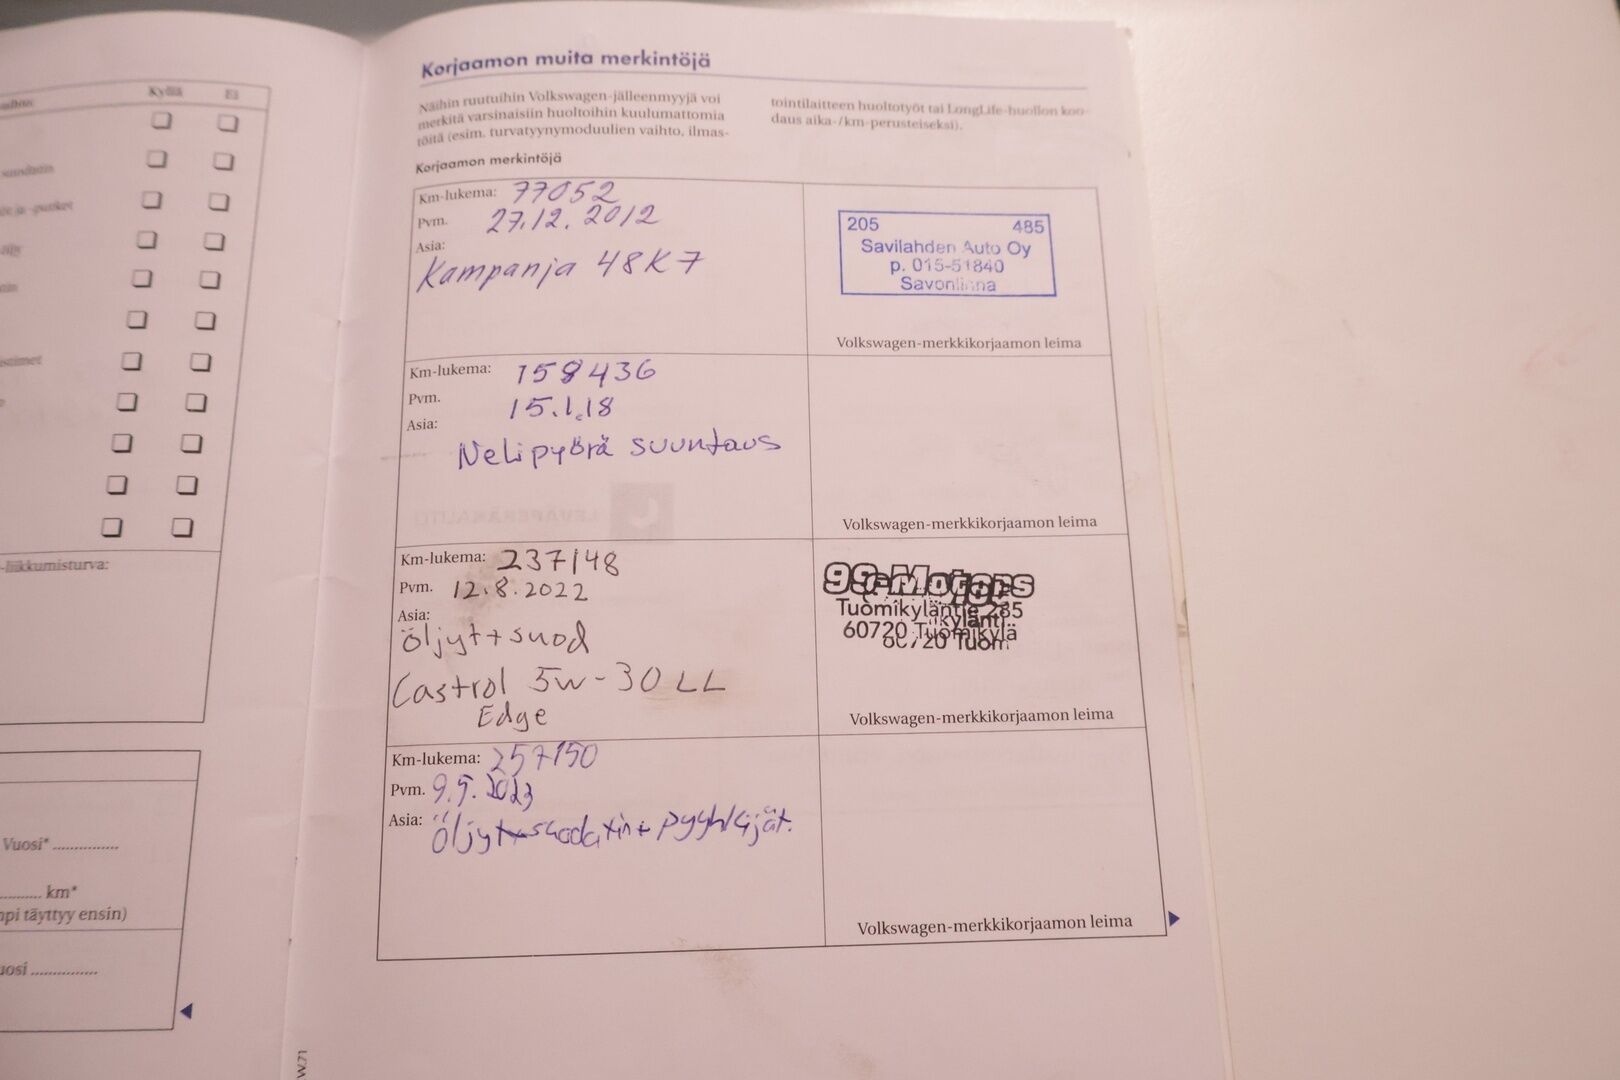 Kyllä Ei
-liikkumisturva:
Vuosi* ...............
.......... km*
täyttyy ensin)
...............
Korjaamon muita merkintöjä
Näihin ruutuihin Volkswagen-jälleenmyyjä voi
merkitä varsinaisiin huoltoihin kuulumattomia
töitä (esim. turvatyynymoduulien vaihto, ilmas-
tointilaitteen huoltotyöt tai LongLife-huollon koo-
daus aika-/km-perusteiseksi).
Korjaamon merkintöjä
Km-lukema: 77052
Pvm. 27.12.2012
Asia:
Kampanja 48K7
205 485
Savilahden Auto Oy
p. 015-51840
Savonlinna
Volkswagen-merkkikorjaamon leima
Km-lukema: 158436
Pvm. 15.1.18
Asia:
Nelipyörä suuntaus
Volkswagen-merkkikorjaamon leima
Km-lukema: 237148
Pvm. 12.8.2022
Asia:
öljyt+suod
Castrol 5w-30 LL
Edge
99-Motors
Tuomikyläntie 285
60720 Tuomikylä
Volkswagen-merkkikorjaamon leima
Km-lukema: 257150
Pvm. 9.5.2023
Asia: Öljyt+suodatin+pyyhkijät.
Volkswagen-merkkikorjaamon leima